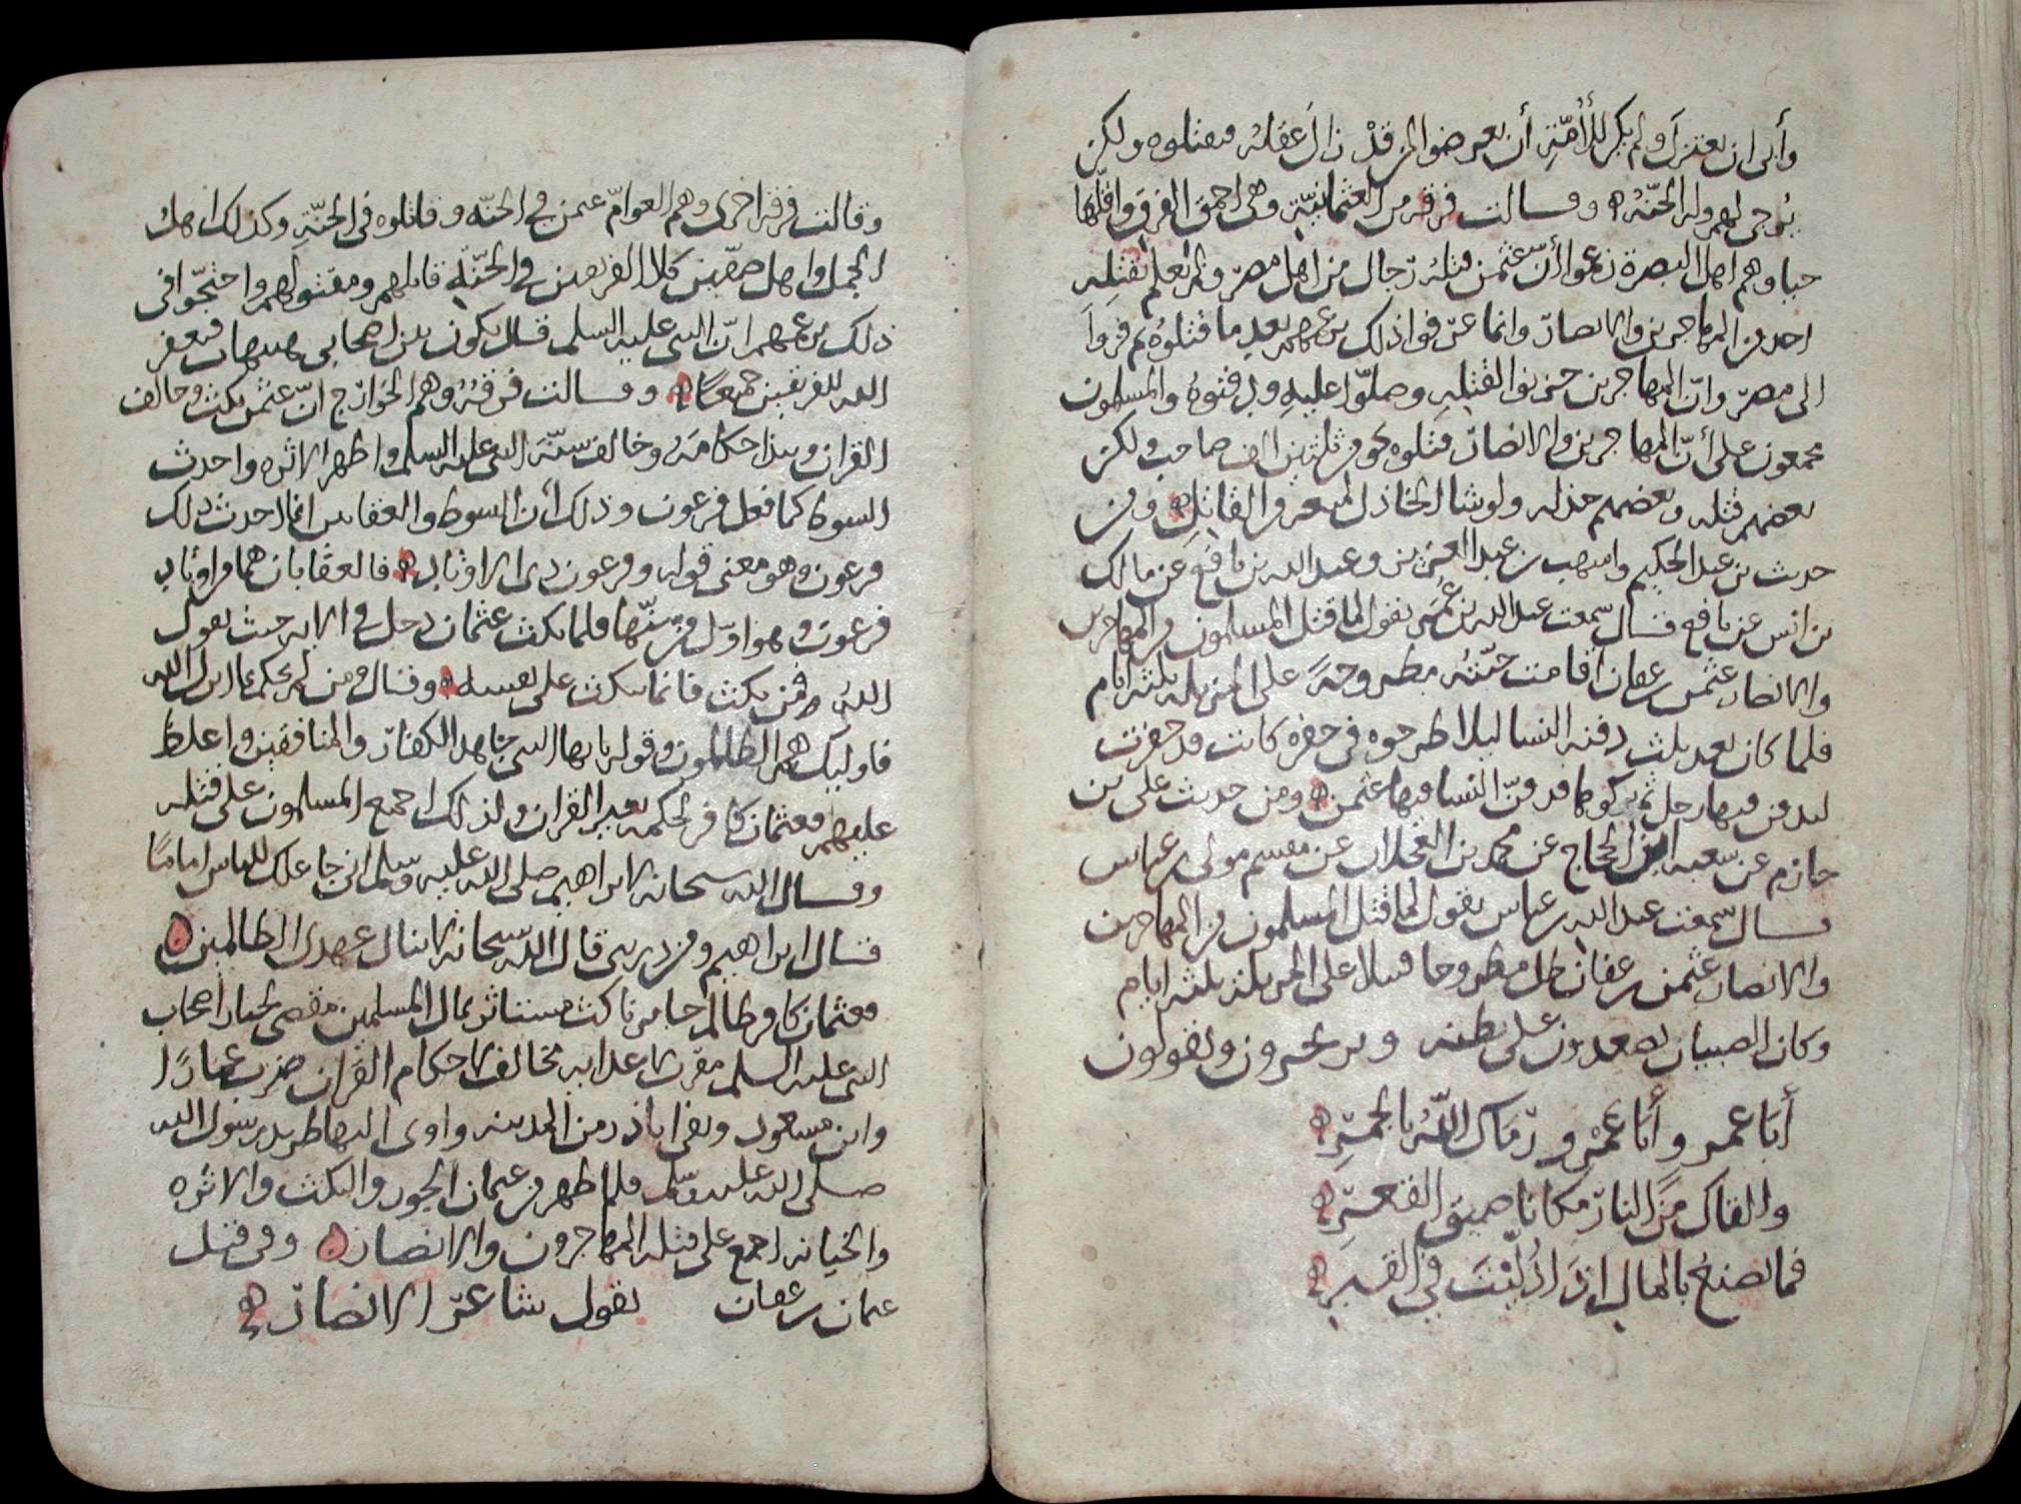 وأبى ان يعتزل ولم يكن للأمّة أن يعرضوا لمن قد زال عقله فيقتلوه ولكن
يُوجى لهم وله الجنّة وقالت فرقة من العثمانيّة وهى احمق الفرق واقلّها
حيا وهم اهل البصرة زعموا أنّ عثمن قتله رجال من اهل مصر ولم يعلم بقتله
احد من المهاجرين والانصار وانما عرفوا ذلك بزعمهم بعد ما قتلوه ثم فروا
الى مصر وانّ المهاجرين حزنوا لقتله وصلّوا عليه ودفنوه والمسلمون
مجمعون على أنّ المهاجرين والانصار قتلوه نحو من ثلثين الف صاحب ولكن
بعضهم قتله وبعضهم خذله ولو شا الخاذل لمنعه من القاتل ومن
حديث بن عبد الحكيم واشهب بن عبد العزيز وعبد الله بن نافع عن مالك
بن انس عن نافع قال سمعت عبد الله بن عمر يقول لما قتل المسلمون من المهاجرين
والانصار عثمن بن عفان اقامت جثته مطروحة على المزبلة ثلثة ايام
فلما كان بعد ثلث دفنه النسا ليلا طرحوه فى حفرة كانت قد حفرت
ليدفن فيها رجل ثم تركوها فدفنّ النسا فيها عثمن ومن حديث على بن
حازم عن شعبه ابن الحجاج عن محمد بن العجلان عن مقسم مولى بن عباس
قال سمعت عبد الله بن عباس يقول لما قتل المسلمون من المهاجرين
والانصار عثمن بن عفان ظل مطروحا قتيلا على المزبلة ثلثة ايام
وكان الصبيان يصعدون على بطنه ويرتجزون ويقولون
أبا عمرو أبا عمرو رماك الله بالجمر
والقاك من النار مكانا ضيق القعر
فما تصنع بالمال اذا دُلّيت في القبر
وقالت فرقة اخرى وهم العوامّ عثمن فى الجنة وقاتلوه فى الجنّة وكذلك اهل
الجمل واهل صفّين كلا الفريقين فى الجنّة قاتلهم ومقتولهم واحتجّوا فى
ذلك بزعمهم انّ النبى عليه السلم قال يكون بين اصحابى هنيهات فيغفر
الله للفريقين جميعًا وقالت فرقة وهم الخوارج انّ عثمن نكث وخالف
القران ونبذ احكامه وخالف سنّة النبى عليه السلم واظهر الاثره واحدث
السوط كما فعل فرعون وذلك أن السوط والعقابين انما احدث ذلك
فرعون وهو معنى قوله وفرعون ذى الاوتاد فالعقابان هما من اوتاد
فرعون وهو اوّل من سنّها فلما نكث عثمان دخل فى الايه حيث يقول
الله فمن نكث فانما ينكث على نفسه وقال ومن لم يحكم بما انزل الله
فاوليك هم الظالمون وقوله يايها النبى جاهد الكفار والمنافقين واغلظ
عليهم فعثمان كافر لحكمه بغير القران ولذلك اجمع المسلمون على قتله
وقال الله سبحانه لابراهيم صلى الله عليه وسلم انى جاعلك للناس امامًا
قال ابراهيم ومن ذريتى قال الله سبحانه لا ينال عهدى الظالمين
فعثمان كافر ظالم خاين ناكث مستاثر بمال المسلمين مقصى لخيار اصحاب
النبى عليه السلم مقرّب لاعدايه مخالف لاحكام القران ضرب عمارًا
وابن مسعود ونفى اباذر من المدينه واوى اليها طريد رسول الله
صلى الله عليه وسلم فلما ظهر من عثمان الجور والنكث والاثره
والخيانه اجمع على قتله المهاجرون والانصار وفى قتل
عثمان بن عفان يقول شاعر الانصار